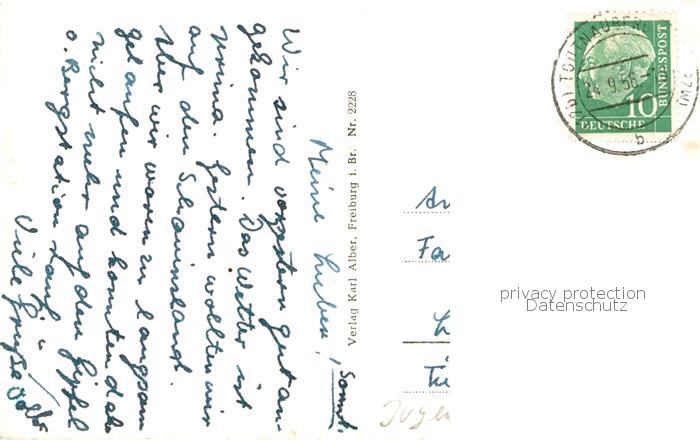 Meine Lieben, Sonnt.
Wir sind vorgestern gut an-
gekommen. Das Wetter ist
prima. Gestern wollten wir
auf den Schauinsland.
Aber wir waren zu langsam
gelaufen und konnten daher
nicht mehr auf den Gipfel
o. Bergstation rauf.
Viele Grüße
Verlag Karl Alber, Freiburg i. Br. Nr. 2228
An
Fa
Jugen
24.9.56.
b
10
DEUTSCHE
BUNDESPOST
privacy protection
Datenschutz